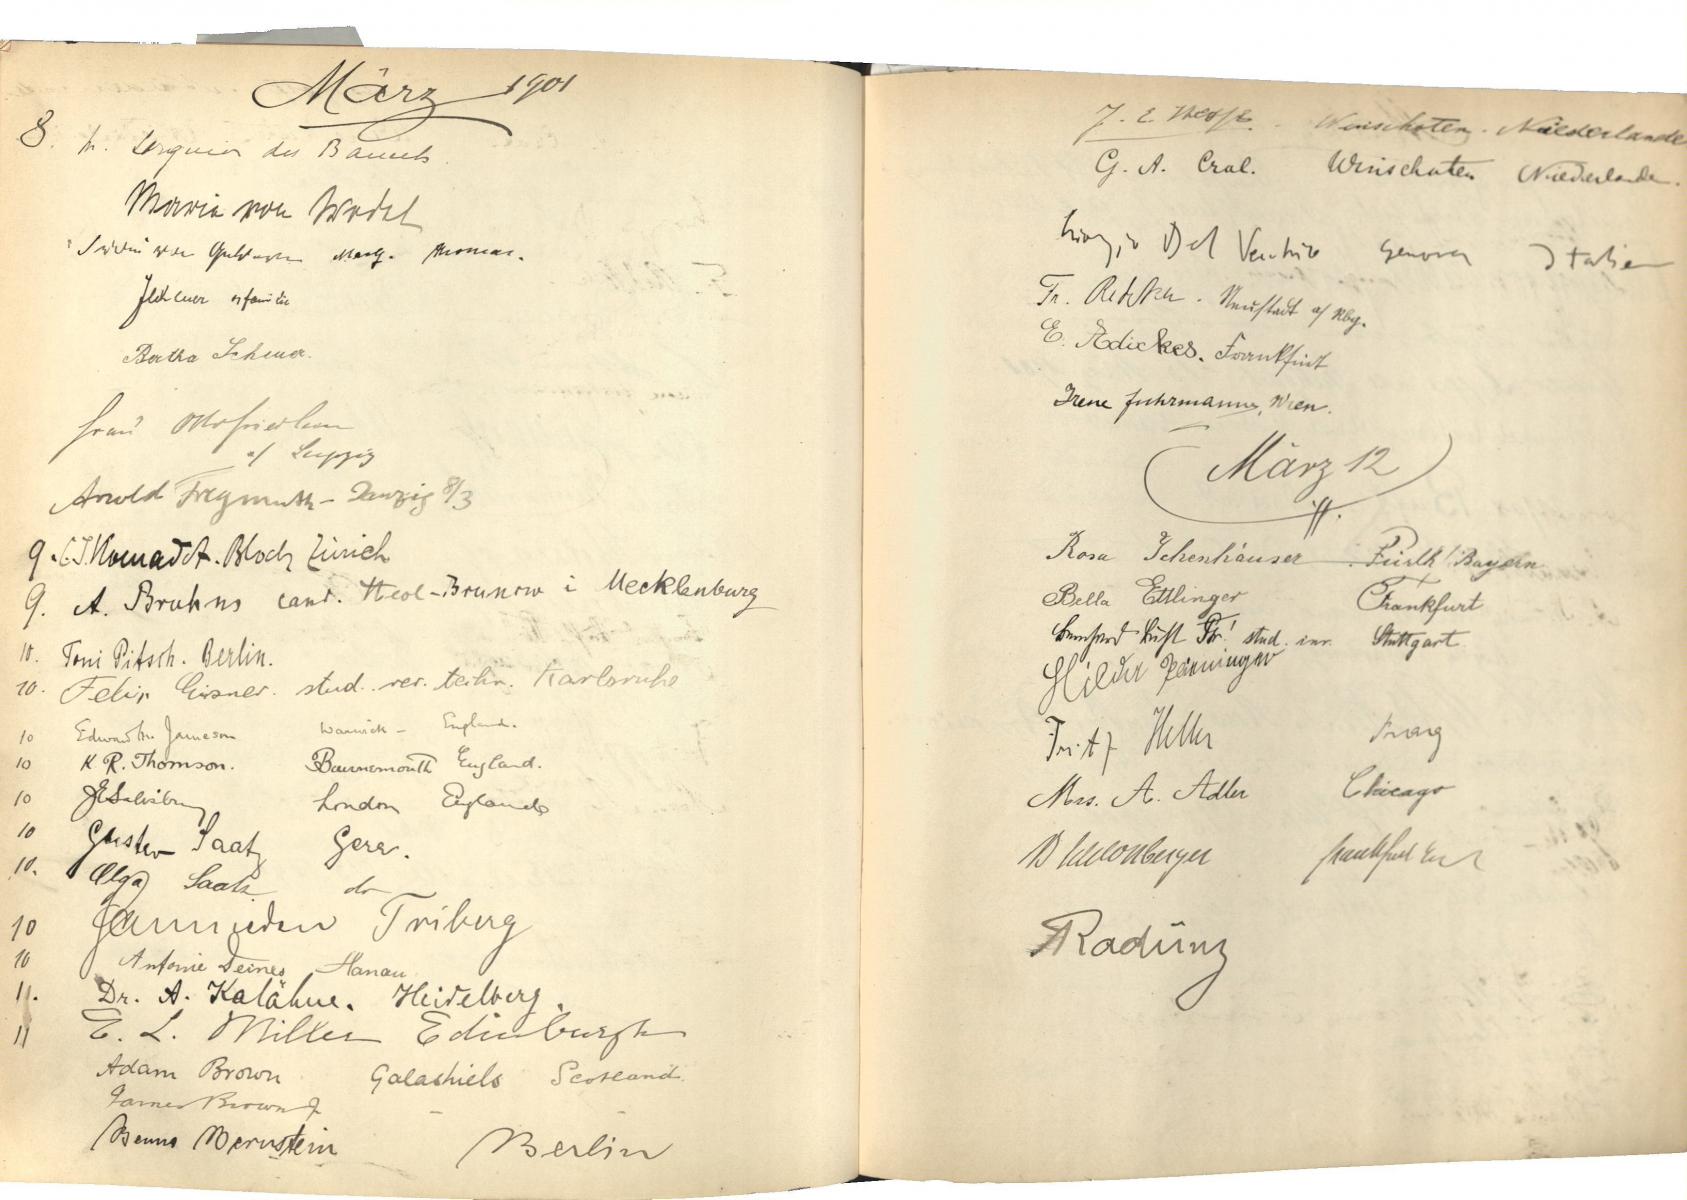 März 1901
8.
Maria von Wedel
von Marg. Thomas.
Bertha Scheuer.
Frau
a/ Leipzig
Arnold Freymuth - Danzig 8/3
9. Bloch Zürich
9. A. Bruhns cand. theol - Brunow i Mecklenburg
10. Toni Pitsch. Berlin.
10. Felix Eisner. stud. rer. techn. Karlsruhe
10 Jameson Warwick - England.
10 K. R. Thomson. Bournemouth England.
10 London England
10 Gustav Saatz Gera.
10. Olga Saatz do
10 Triberg
10 Antonie Deines Hanau
11. Dr. A. Kalähne. Heidelberg.
11 E. L. Miller Edinburgh
Adam Brown Galashiels Scotland.
James Brown Jr
Benno Bernstein Berlin
J. E. Winschoten. Niederlande
G. A. Cral. Winschoten Niederlande.
Del Genova Italien
Fr. Neustadt a/ Rbg.
E. Adickes. Frankfurt
Irene Fuhrmann, Wien.
März 12
Rosa Ichenhäuser Fürth / Bayern
Bella Ettlinger Frankfurt
stud. iur. Stuttgart
Fritz Heller Prag
Mrs. A. Adler Chicago
Radünz